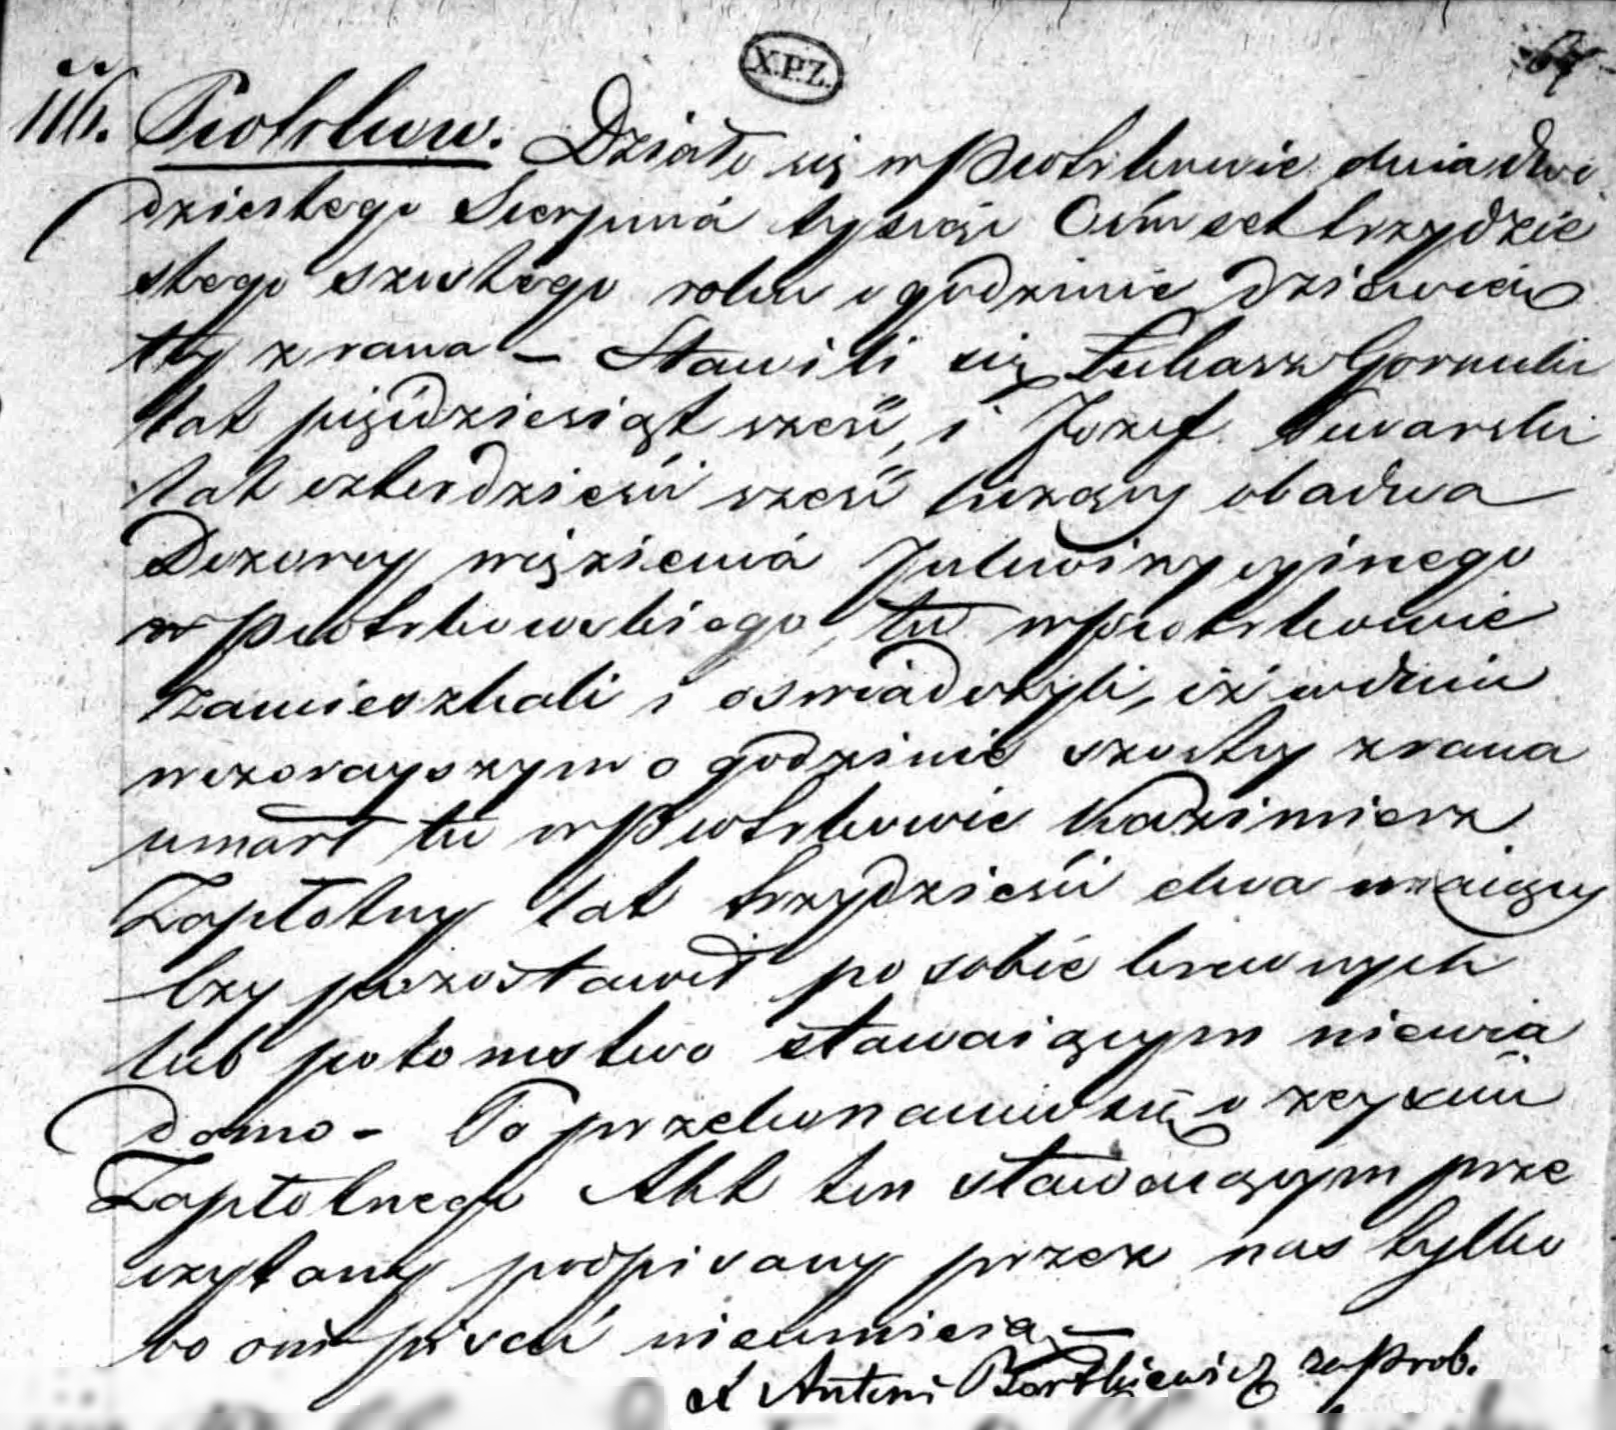 X.P.Z.
64
116. Piotrkow. Działo się w Piotrkowie dnia dwu
dziestego Sierpnia tysiąc Ośmset trzydzie
stego szustego roku o godzinie dziewią
tey z rana – Stawili się Łukasz Gornicki
lat pięćdziesiąt sześć, i Jozef Suwarski
lat czterdzieści sześć liczący obadwa
Dozorcy więzienia Inkwizycyinego
Piotrkowskiego, tu w Piotrkowie
zamieszkali i oswiadczyli, iż w dniu
wczorayszym o godzinie szostey z rana
umarł tu w Piotrkowie Kazimierz
Zapłotny lat trzydzieści dwa maiący
czy pozostawił po sobie krewnych
lub potomstwo stawaiącym niewia
domo – Po przekonaniu się o zeyściu
Zapłotnego Akt ten stawaiącym prze
czytany podpisany przez nas tylko
bo oni pisać nieumieią –
X Antoni Bartkiewicz za Prob.